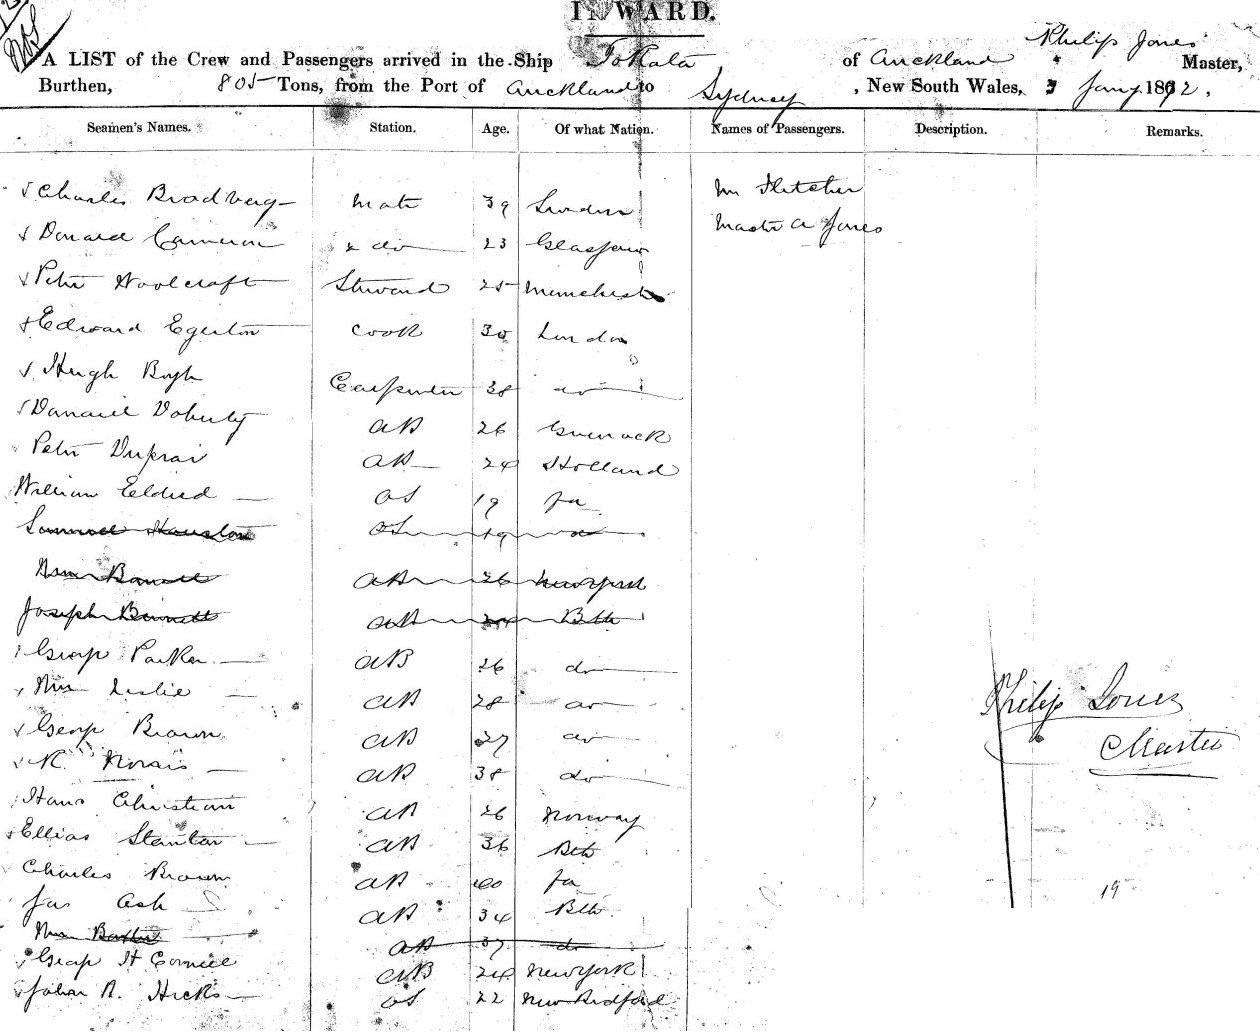 INWARD.
A LIST of the Crew and Passengers arrived in the Ship of Auckland Philip Jones Master,
Burthen, 805 Tons, from the Port of Auckland to Sydney, New South Wales, 3 Jany. 1872.
Seamen's Names. Station. Age. Of what Nation. Names of Passengers. Description. Remarks.
Charles Mate 39 Mr Fletcher
Donald Cameron 2 do 23 Glasgow Master A Jones
Peter Woolcraft Steward 25
Edward Egerton Cook 30 London
Hugh Carpenter 38 do
Doherty AB 26 Greenock
Peter AB 24 Holland
William Eldred OS 19
Samuel Houston OS 19 do
AB 26
Joseph Bennett AB
George Parker AB 26 do
Wm Leslie AB 28 do
George Brown AB 27 do
R. Norais AB 38 do
Philip Jones
Master
Hans Christian AB 26 Norway
Ellias Stanton AB 36
Charles Brown AB 40
Jas Ash AB 34
19
Wm AB 37 do
Geor H AB 24 New York
John R. Hicks OS 22 New Bedford